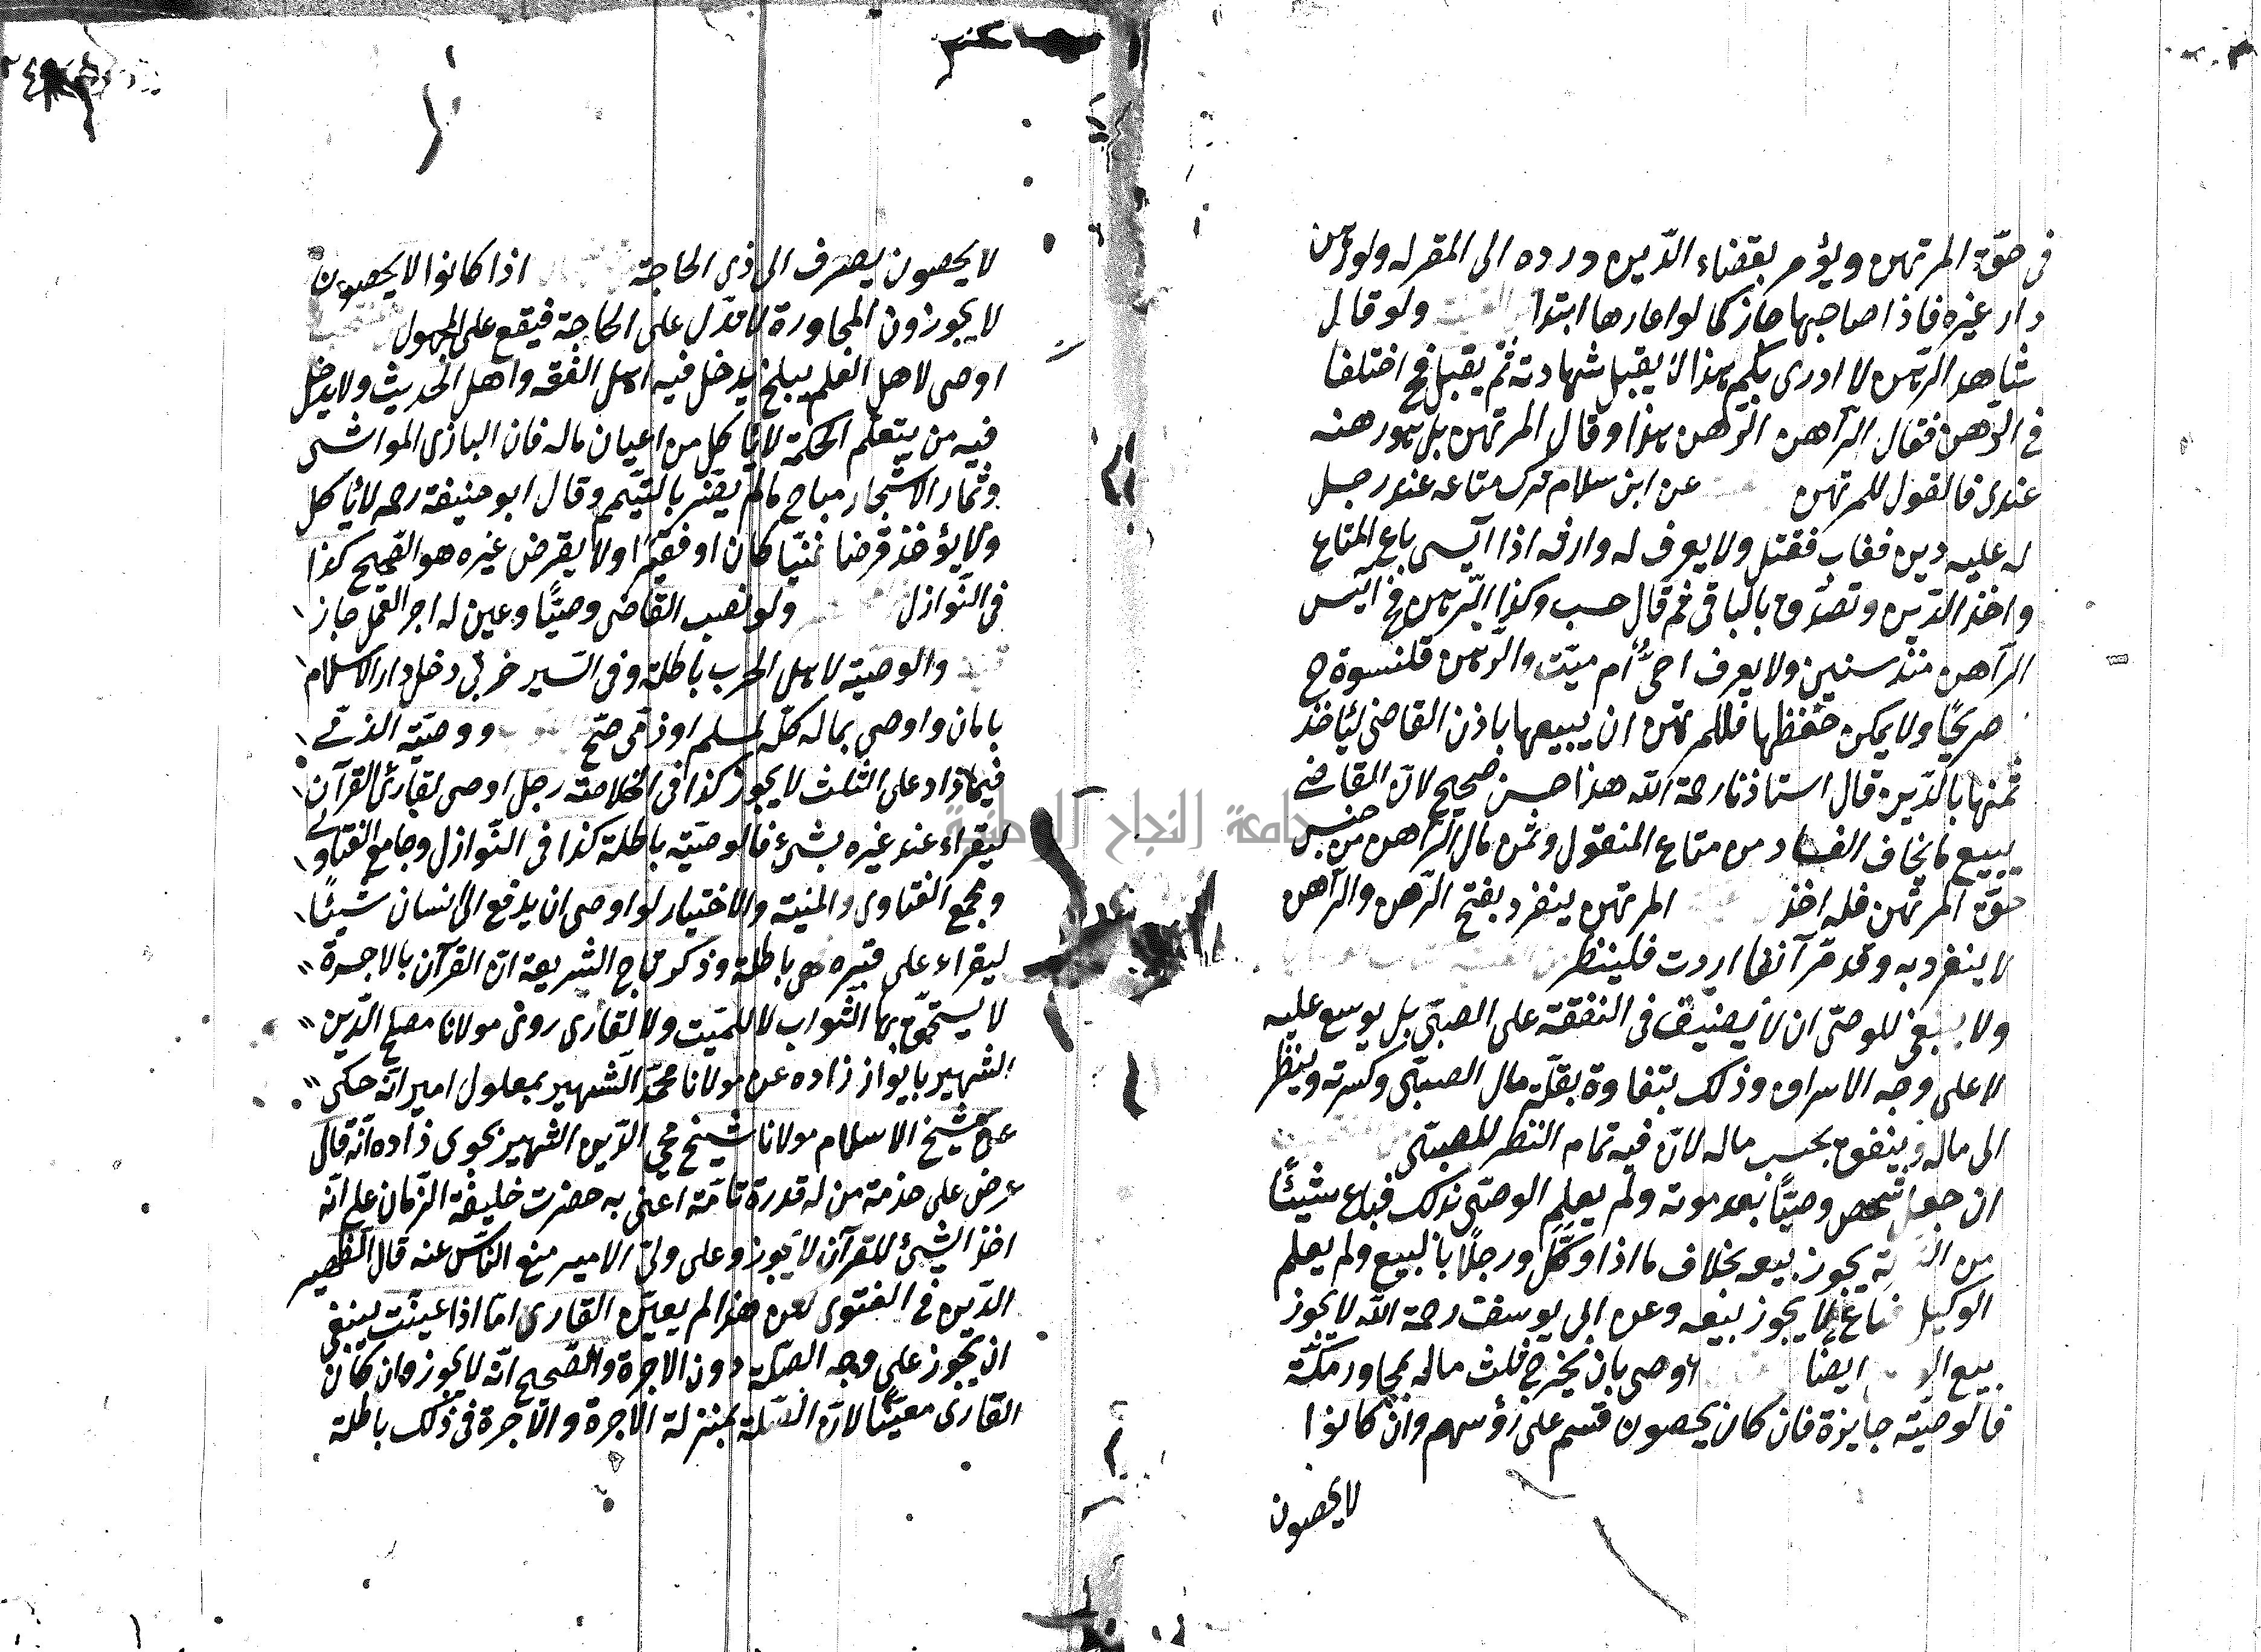 فى حقّ المرتهن ويؤمر بقضاء الدّين ورده الى المقر له ولو رهن
دار غيره فاذا صاحبها جاز كما لو اعارها ابتدا ولو قال
شاهد الرّهن لا ادرى بكم هذا لا يقبل شهادته ثم يقبل فى اختلفا
فى الرّهن فقال الرّاهن الرّهن هذا وقال المرتهن بل هو رهنه
عندى فالقول للمرتهن عن ابن سلام ترك متاعه عند رجل
له عليه دين فغاب فقتل ولا يعرف له وارثه اذا آيس باع المتاع
واخذ الدّين وتصدّق بالباقى ثم قال حسب وكذا الرّهن
الرّاهن منذ سنين ولا يعرف احىّ أم ميّت والرّهن قلنسوة
صريحًا ولا يمكن حفظها فللمرتهن ان يبيعها باذن القاضى ليأخذ
ثمنها بالدّين قال استاذنا رحمة اللّه هذا حسن صحيح لانّ القاضى
يبيع ما يخاف الفساد من متاع المنقول وثمن مال الرّاهن من جنس
حقّ المرتهن فله اخذ المرتهن ينفرد بفتح الرّهن والرّاهن
لا ينفرد به وقد مرّ آنفا اردت فلينظر
ولا ينبغى للوصىّ ان لا يضيّق فى النفقة على الصبىّ بل يوسع عليه
لا على وجه الاسراف وذلك يتفاوة بقلّة مال الصبىّ وكثرته وينظر
الى ماله وينفق بحسب ماله لانّ فيه تمام النظر للصبىّ
ان جعل شخص وصيًّا بعد موته ولم يعلم الوصىّ ذلك فباع شيئًا
من يجوز بيعه بخلاف ما اذا وكّل ورجلًا بالبيع ولم يعلم
الوكيل فباع لا يجوز بيعه وعن ابى يوسف رحمة اللّه لا يجوز
بيع ايضًا اوصى بان يخرج ثلث ماله لمجاور مكّة
فالوصيّة جايزة فان كان يحصون قسم على رؤسهم وان كانوا
لا يحصون
لا يحصون يصرف الى ذى الحاجة اذا كانوا لا يحصون
لا يجوز ون المجاورة لا تدّل على الحاجة فيقع على المجهول
اوصى لاهل العلم ببلخ يدخل فيه اهل الفقه واهل الحديث ولا يدخل
فيه من يتعلّم الحكمة لا يأكل من اعيان ماله فان البازى المواشى
وثمار الاشجار مباح ما لم يضرّ باليتيم وقال ابو حنيفة رحمه لا يأكل
ولا يؤخذ قرضا غنيّا كان او فقيرًا ولا يقرض غيره هو الصّحيح كذا
فى النّوازل ولو نصب القاضى وصيًّا وعين له اجر العمل جاز
والوصيّة لاهل الحرب باطلة وفى السّير حربى دخل دار الاسلام
بامان واوصى بماله كلّه لمسلم او ذمّى صحّ ووصيّة الذمّى
فيما زاد على الثلث لا يجوز كذا فى الخلاصة رجل اوصى لقارئ القرآن
ليقراء عند غيره بشىء فالوصيّة باطلة كذا فى النّوازل وجامع الفتاوى
ومجمع الفتاوى والمنية والاختيار لو اوصى ان يدفع الى انسان شيئًا
ليقراء على قبره هى باطلة وذكر تاج الشريعة انّ القرآن بالاجرة
لا يستحقّ بها الثّواب لا للميّت ولا للقارى روى مولانا مصلح الدّين
الشهير بايواز زاده عن مولانا محمّد الشهير بمعلول امير انّه حكى
عن شيخ الاسلام مولانا شيخ محى الدّين الشهير بجوى زاده انّه قال
عرض على خدمة من له قدرة تامّة اعنى به حضرت خليفة الزّمان على انّه
اخذ الشىء للقرآن لا يجوز وعلى ولىّ الامير منع النّاس عنه قال الظهير
الدّين فى الفتوى لعن هذا لم يعيّن القارى امّا اذا عيّنت ينبغى
ان يجوز على وجه الصّلة دون الاجرة والصّحيح انّه لا يجوز وان كان
القارى معيّنًا لانّ الصّلة بمنزلة الاجرة والاجرة فى ذلك باطلة